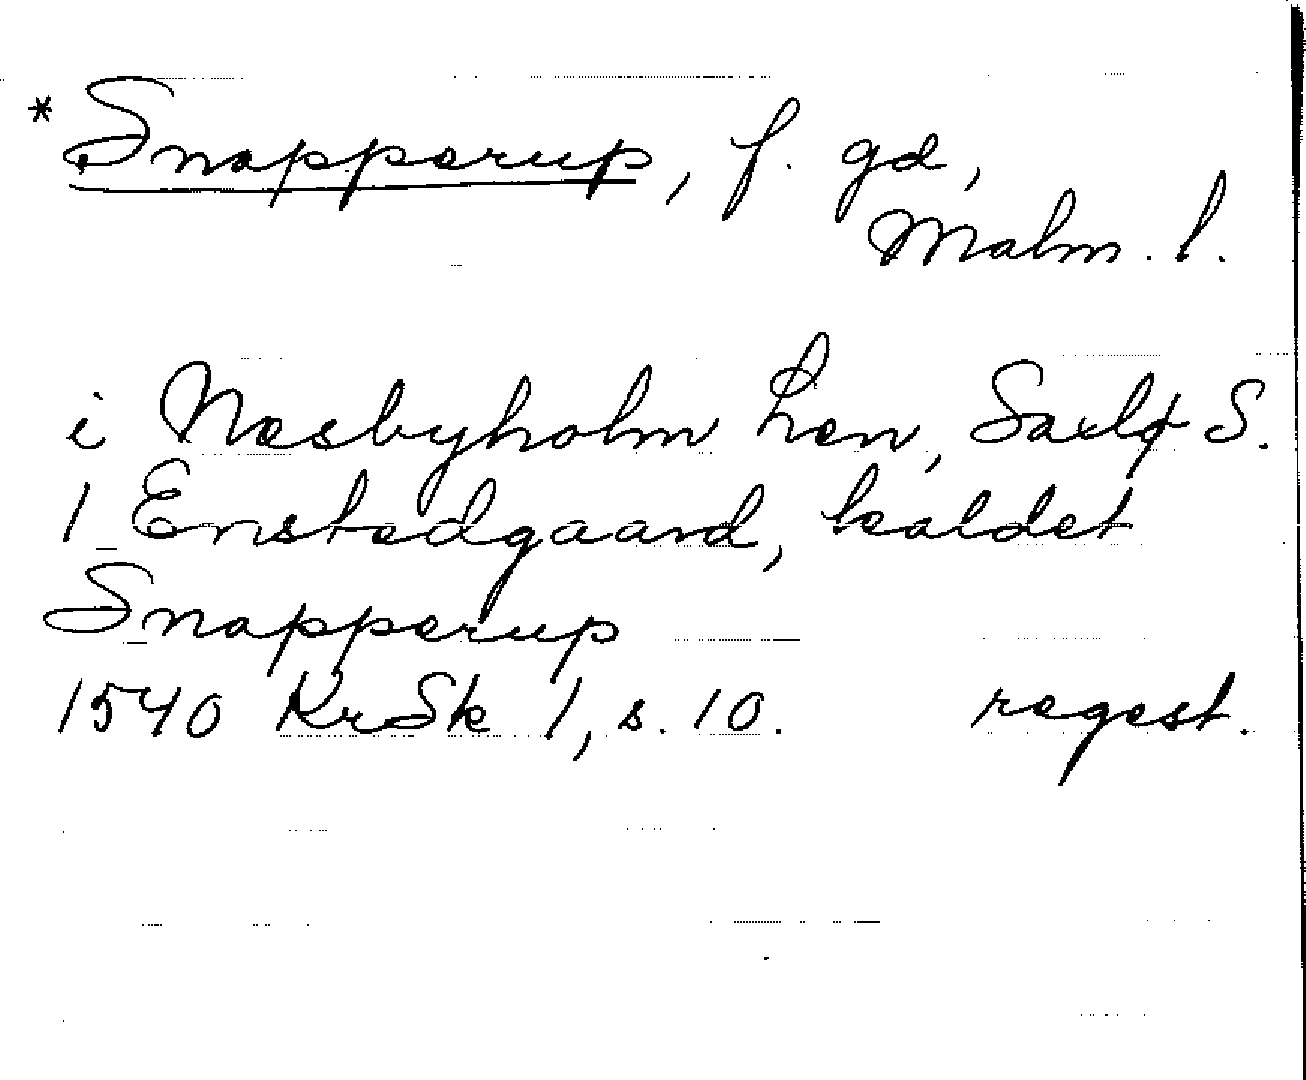 *Snapperup, f. gd,
Malm. l.
i Næsbyholm Len, Saxlø S.
1 Enstedgaard, kaldet
Snapperup
1540 KrSk 1, s. 10. regest.